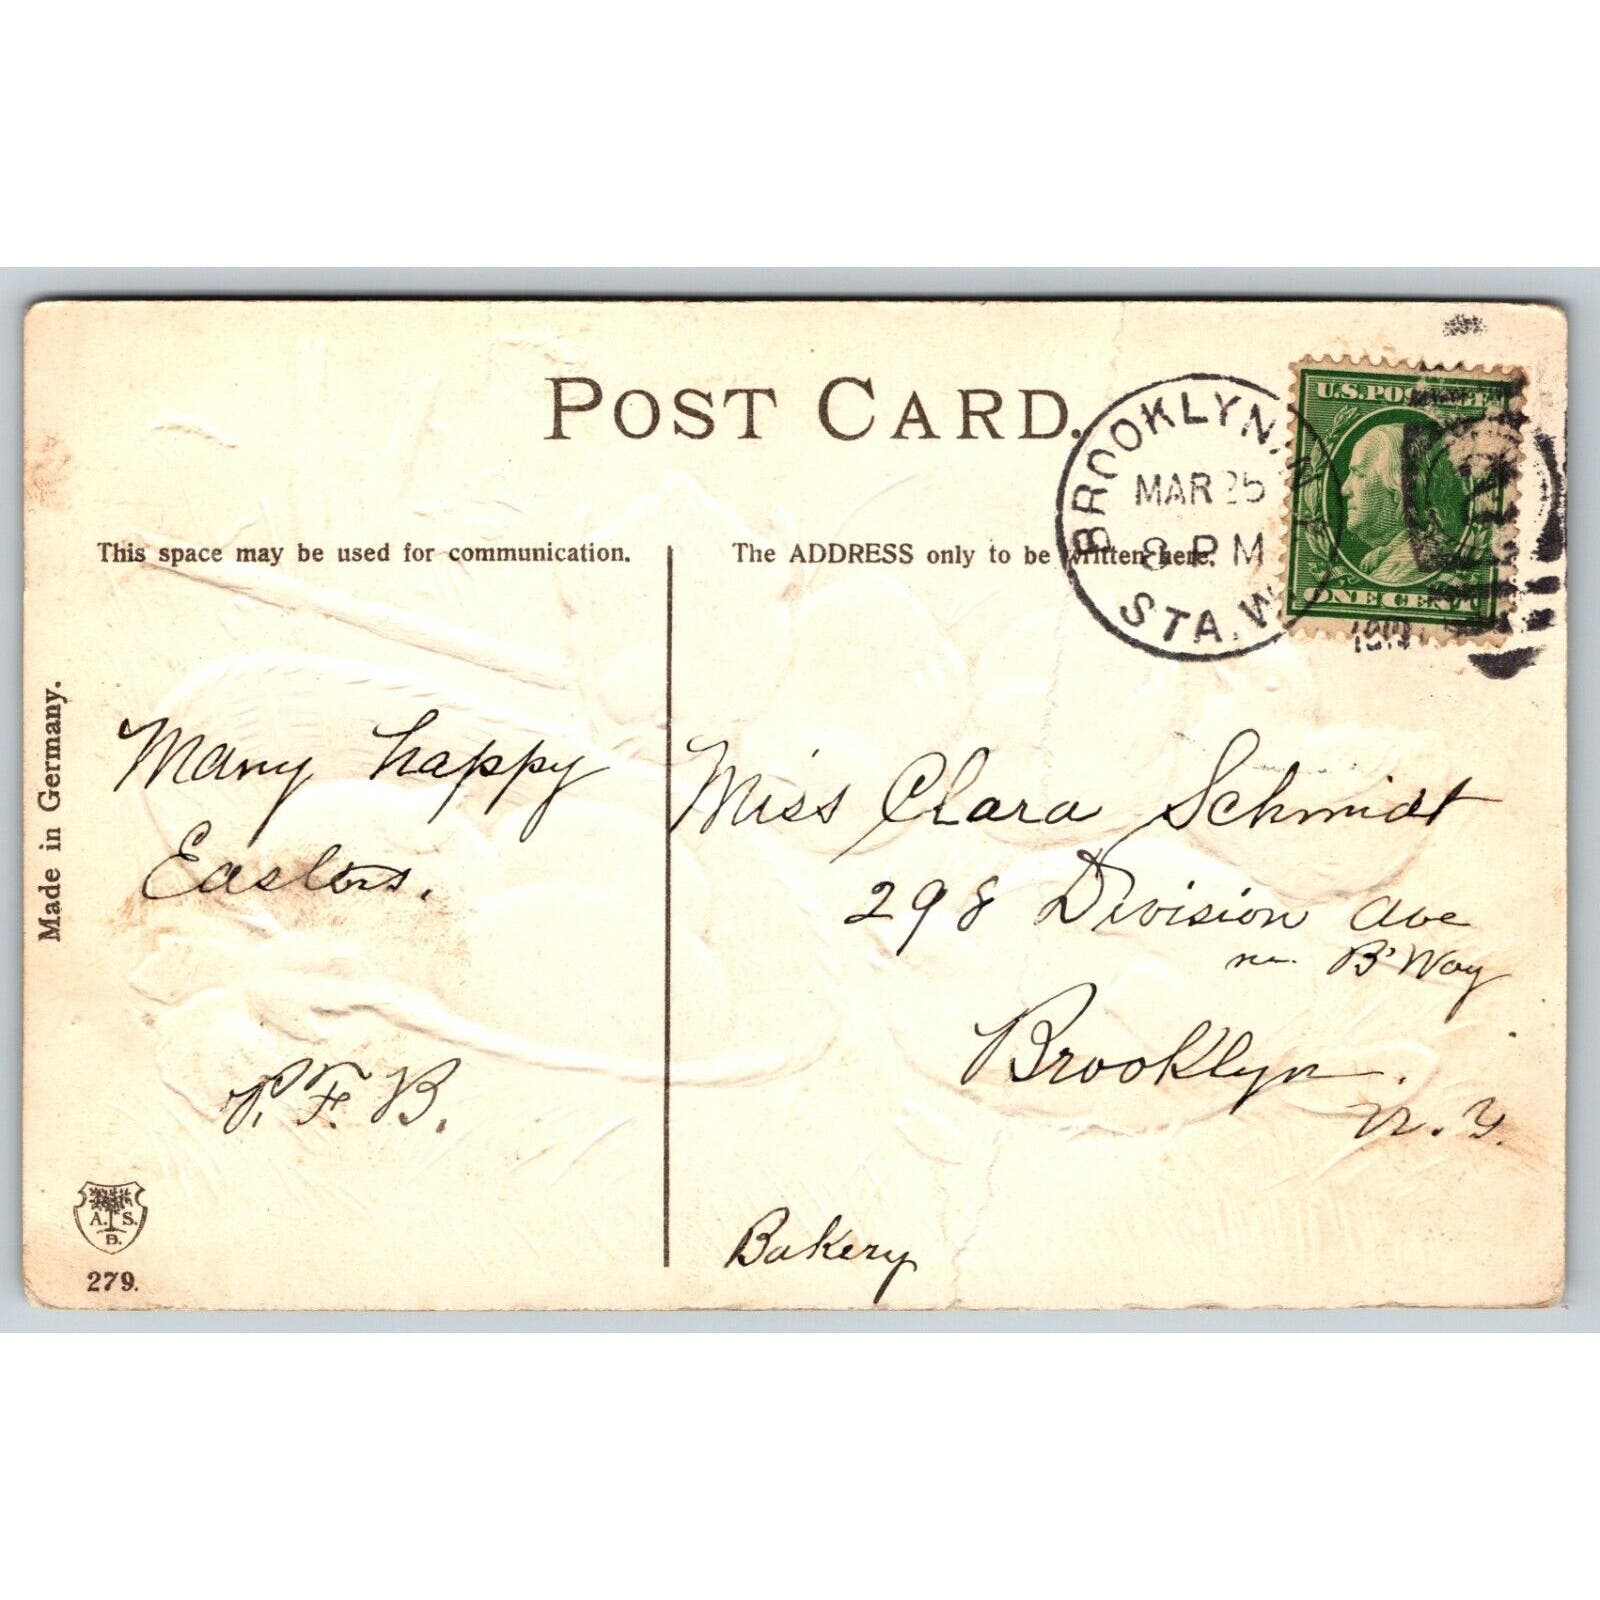 POST CARD.
BROOKLYN, N.Y.
MAR 25
8 PM
STA. W
U.S. POSTAGE
ONE CENT
This space may be used for communication.
The ADDRESS only to be written here.
Made in Germany.
Many happy
Easters.
P. F. B.
Miss Clara Schmidt
298 Division Ave
nr. B'Way
Brooklyn.
N. Y.
Bakery
A. S.
B.
279.